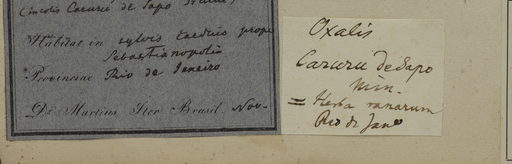 (incolis Caruru de Sapo
Habitat in sylvis caeduis prope
Sebastianopolis
Provinciae Rio de Janeiro
Dr. Martius Iter Brasil. Nov.
Oxalis
Caruru de Sapo
= Herba ranarum
Rio de Jano